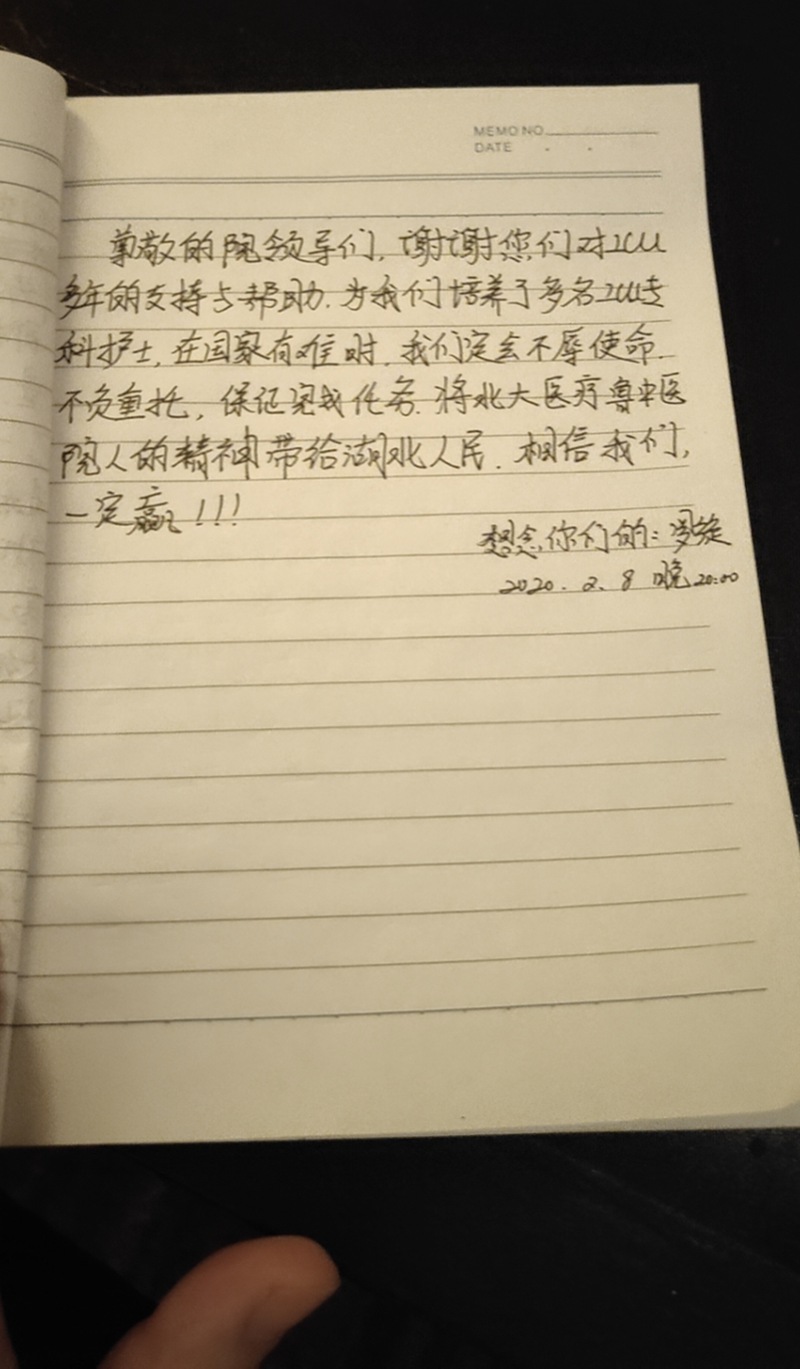 MEMO NO
DATE . .
尊敬的院领导们,谢谢您们对ICU
多年的支持与帮助.为我们培养了多名ICU专
科护士,在国家有难时.我们定会不辱使命.
不负重托,保证完成任务.将北大医疗鲁中医
院人的精神带给湖北人民.相信我们,
一定赢!!!
想念你们的:
2020.2.8 晚20:00